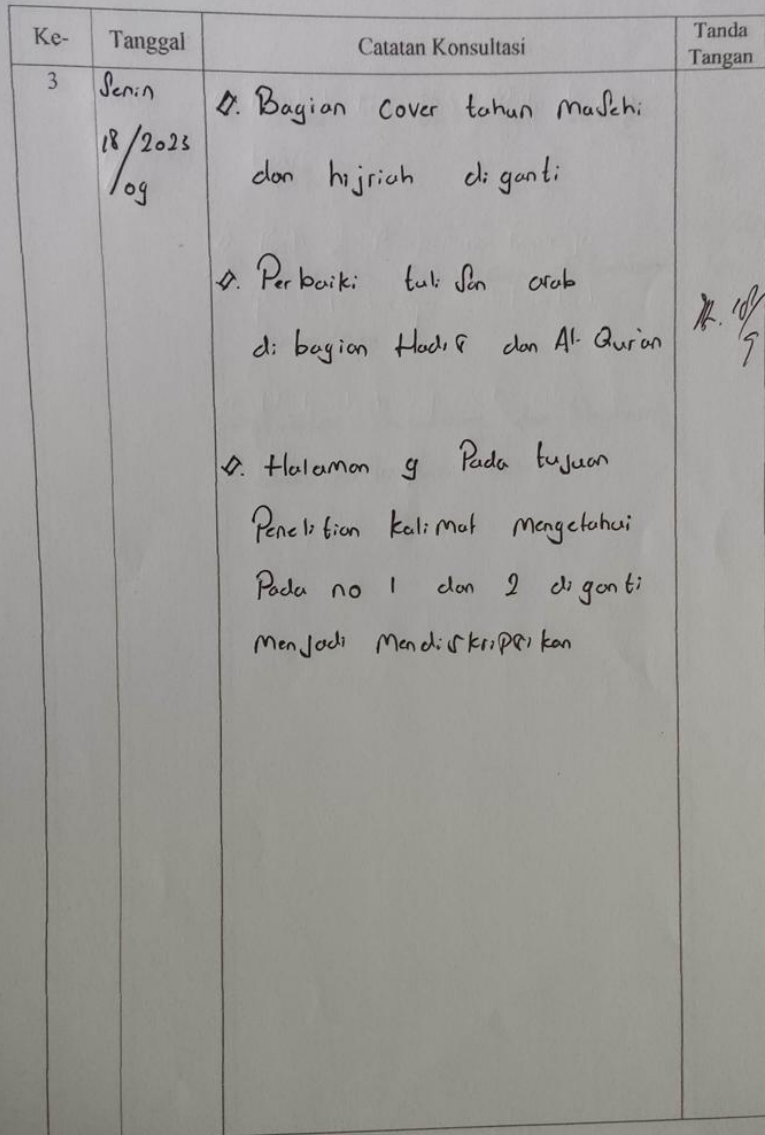 Ke- Tanggal Catatan Konsultasi Tanda Tangan
3 Senin
18/2023
/09
Bagian cover tahun masehi
dan hijriah di ganti
Perbaiki tulisan arab
di bagian Hadis dan Al-Qur'an
18/9
Halaman 9 Pada tujuan
Penelitian kalimat mengetahui
Pada no 1 dan 2 di ganti
Menjadi Mendiskripsikan